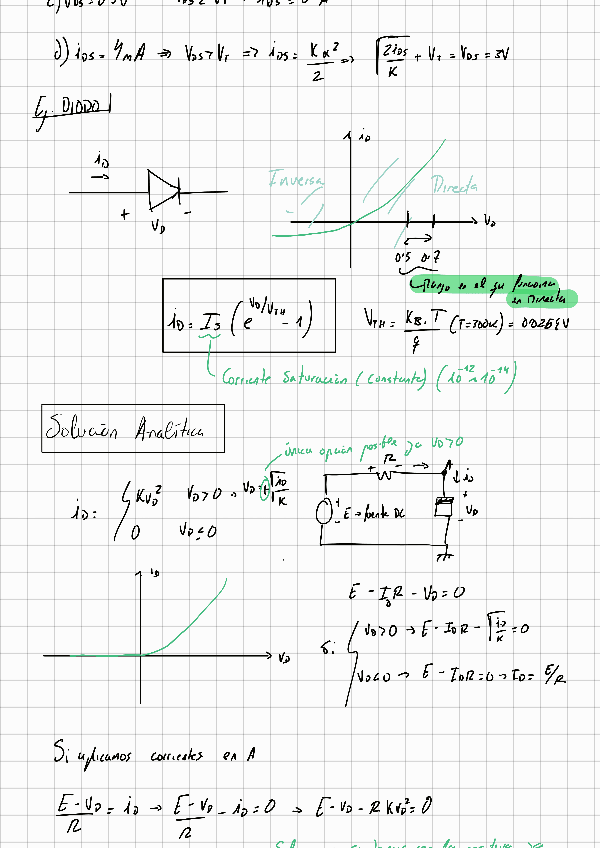 d) iDS = 4mA ⇒ VDS > VT ⇒ iDS = K α² / 2 ⇒ √(2iDS / K) + VT = VDS = 3V
Ej. DIODO
iD
+ VD -
iD
Inversa
Directa
VD
0.5 0.7
Rango en el que funciona
en Directa
iD = IS (e^(VD/VTH) - 1)
VTH = KB·T / q (T=300K) = 0.0259V
Corriente Saturación (constante) (10⁻¹² ~ 10⁻¹⁴)
Solución Analítica
única opción posible ya VD>0
iD: { KVD² VD>0 → VD = +√(iD / K)
0 VD ≤ 0
+ R - A
iD
+ E → fuente DC
-
+ VD -
iD
VD
E - ID R - VD = 0
Si { VD>0 → E - IDR - √(iD / K) = 0
VD<0 → E - IDR = 0 → ID = E/R
Si aplicamos corrientes en A
(E - VD) / R = iD → (E - VD) / R - iD = 0 → E - VD - R KVD² = 0